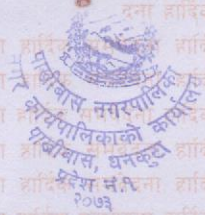 पाख्रीबास नगरपालिका
नगर कार्यपालिकाको कार्यालय
पाख्रीबास, धनकुटा
प्रदेश नं.१
२०७३